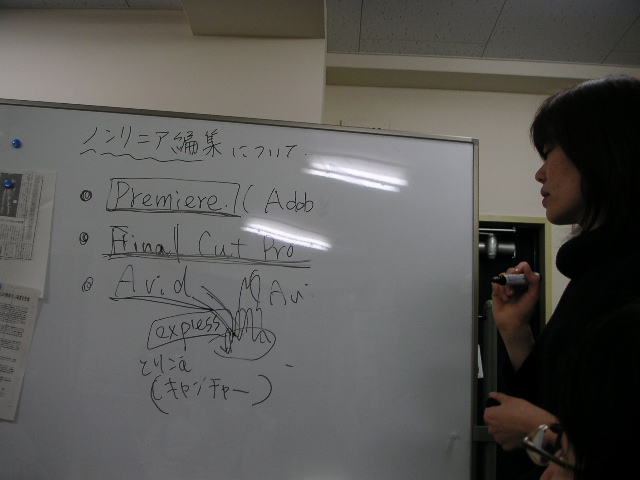 ノンリニア編集について
Premiere (Adob
Final Cut Pro
Avid Avi
express
とりこみ
(キャプチャー)